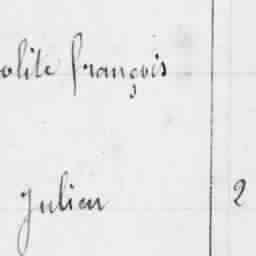 olite françois
Julien 2